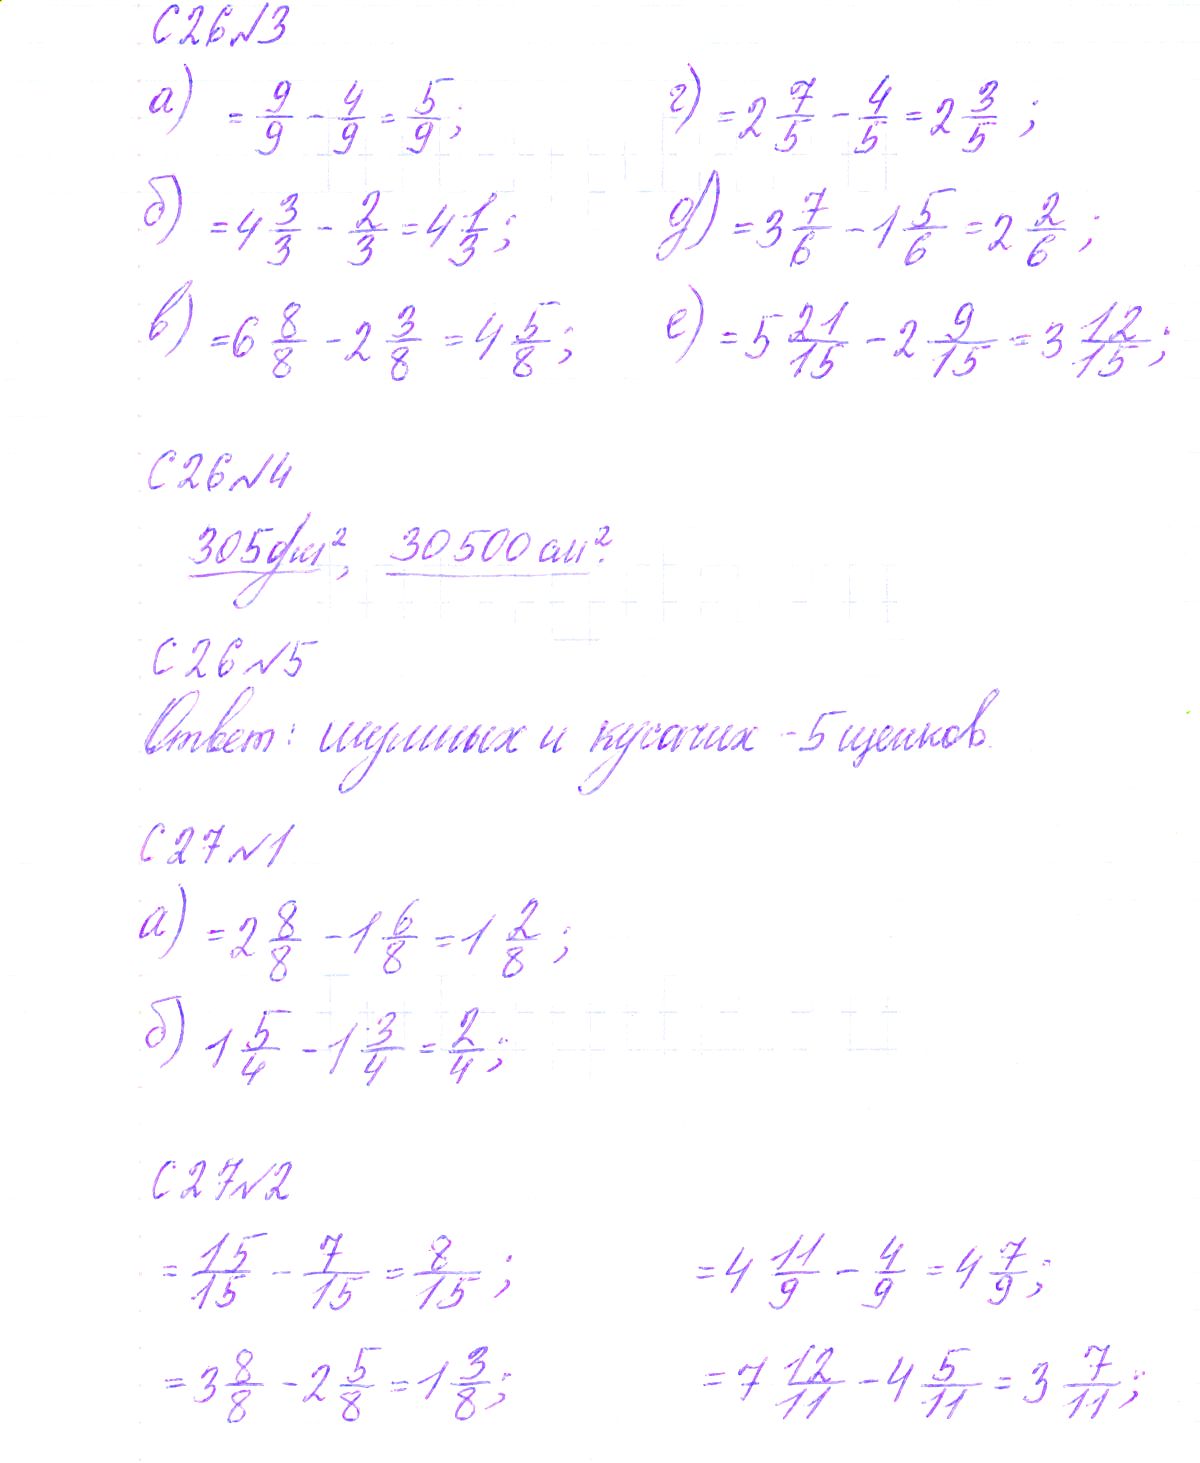 С26№3
а) = 9/9 - 4/9 = 5/9; г) = 2 7/5 - 4/5 = 2 3/5;
б) = 4 3/3 - 2/3 = 4 1/3; д) = 3 7/6 - 1 5/6 = 2 2/6;
в) = 6 8/8 - 2 3/8 = 4 5/8; е) = 5 21/15 - 2 9/15 = 3 12/15;
С26№4
305дм², 30500см².
С26№5
Ответ: шумных и кусачих - 5 щенков.
С27№1
а) = 2 8/8 - 1 6/8 = 1 2/8;
б) 1 5/4 - 1 3/4 = 2/4;
С27№2
= 15/15 - 7/15 = 8/15; = 4 11/9 - 4/9 = 4 7/9;
= 3 8/8 - 2 5/8 = 1 3/8; = 7 12/11 - 4 5/11 = 3 7/11;